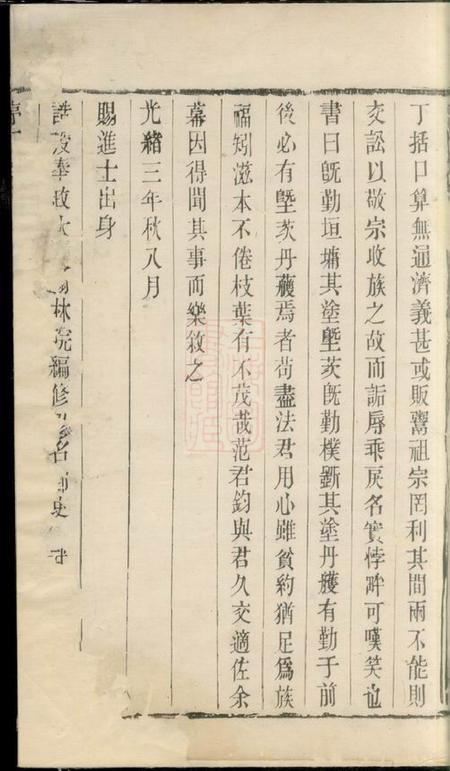 丁括口算無通濟義甚或販鬻祖宗罔利其間兩不能則
交訟以敬宗收族之故而詬辱乘戾名實悖畔可嘆笑也
書曰旣勤垣墉其塗墍茨旣勤樸斲其塗丹雘有勤于前
後必有墍茨丹雘焉者苟盡法君用心雖貧約猶足爲族
福矧滋本不倦枝葉有不茂哉范君鈞與君久交適佐余
幕因得聞其事而樂敘之
光緒三年秋八月
賜進士出身
誥授奉政大林院編修
序